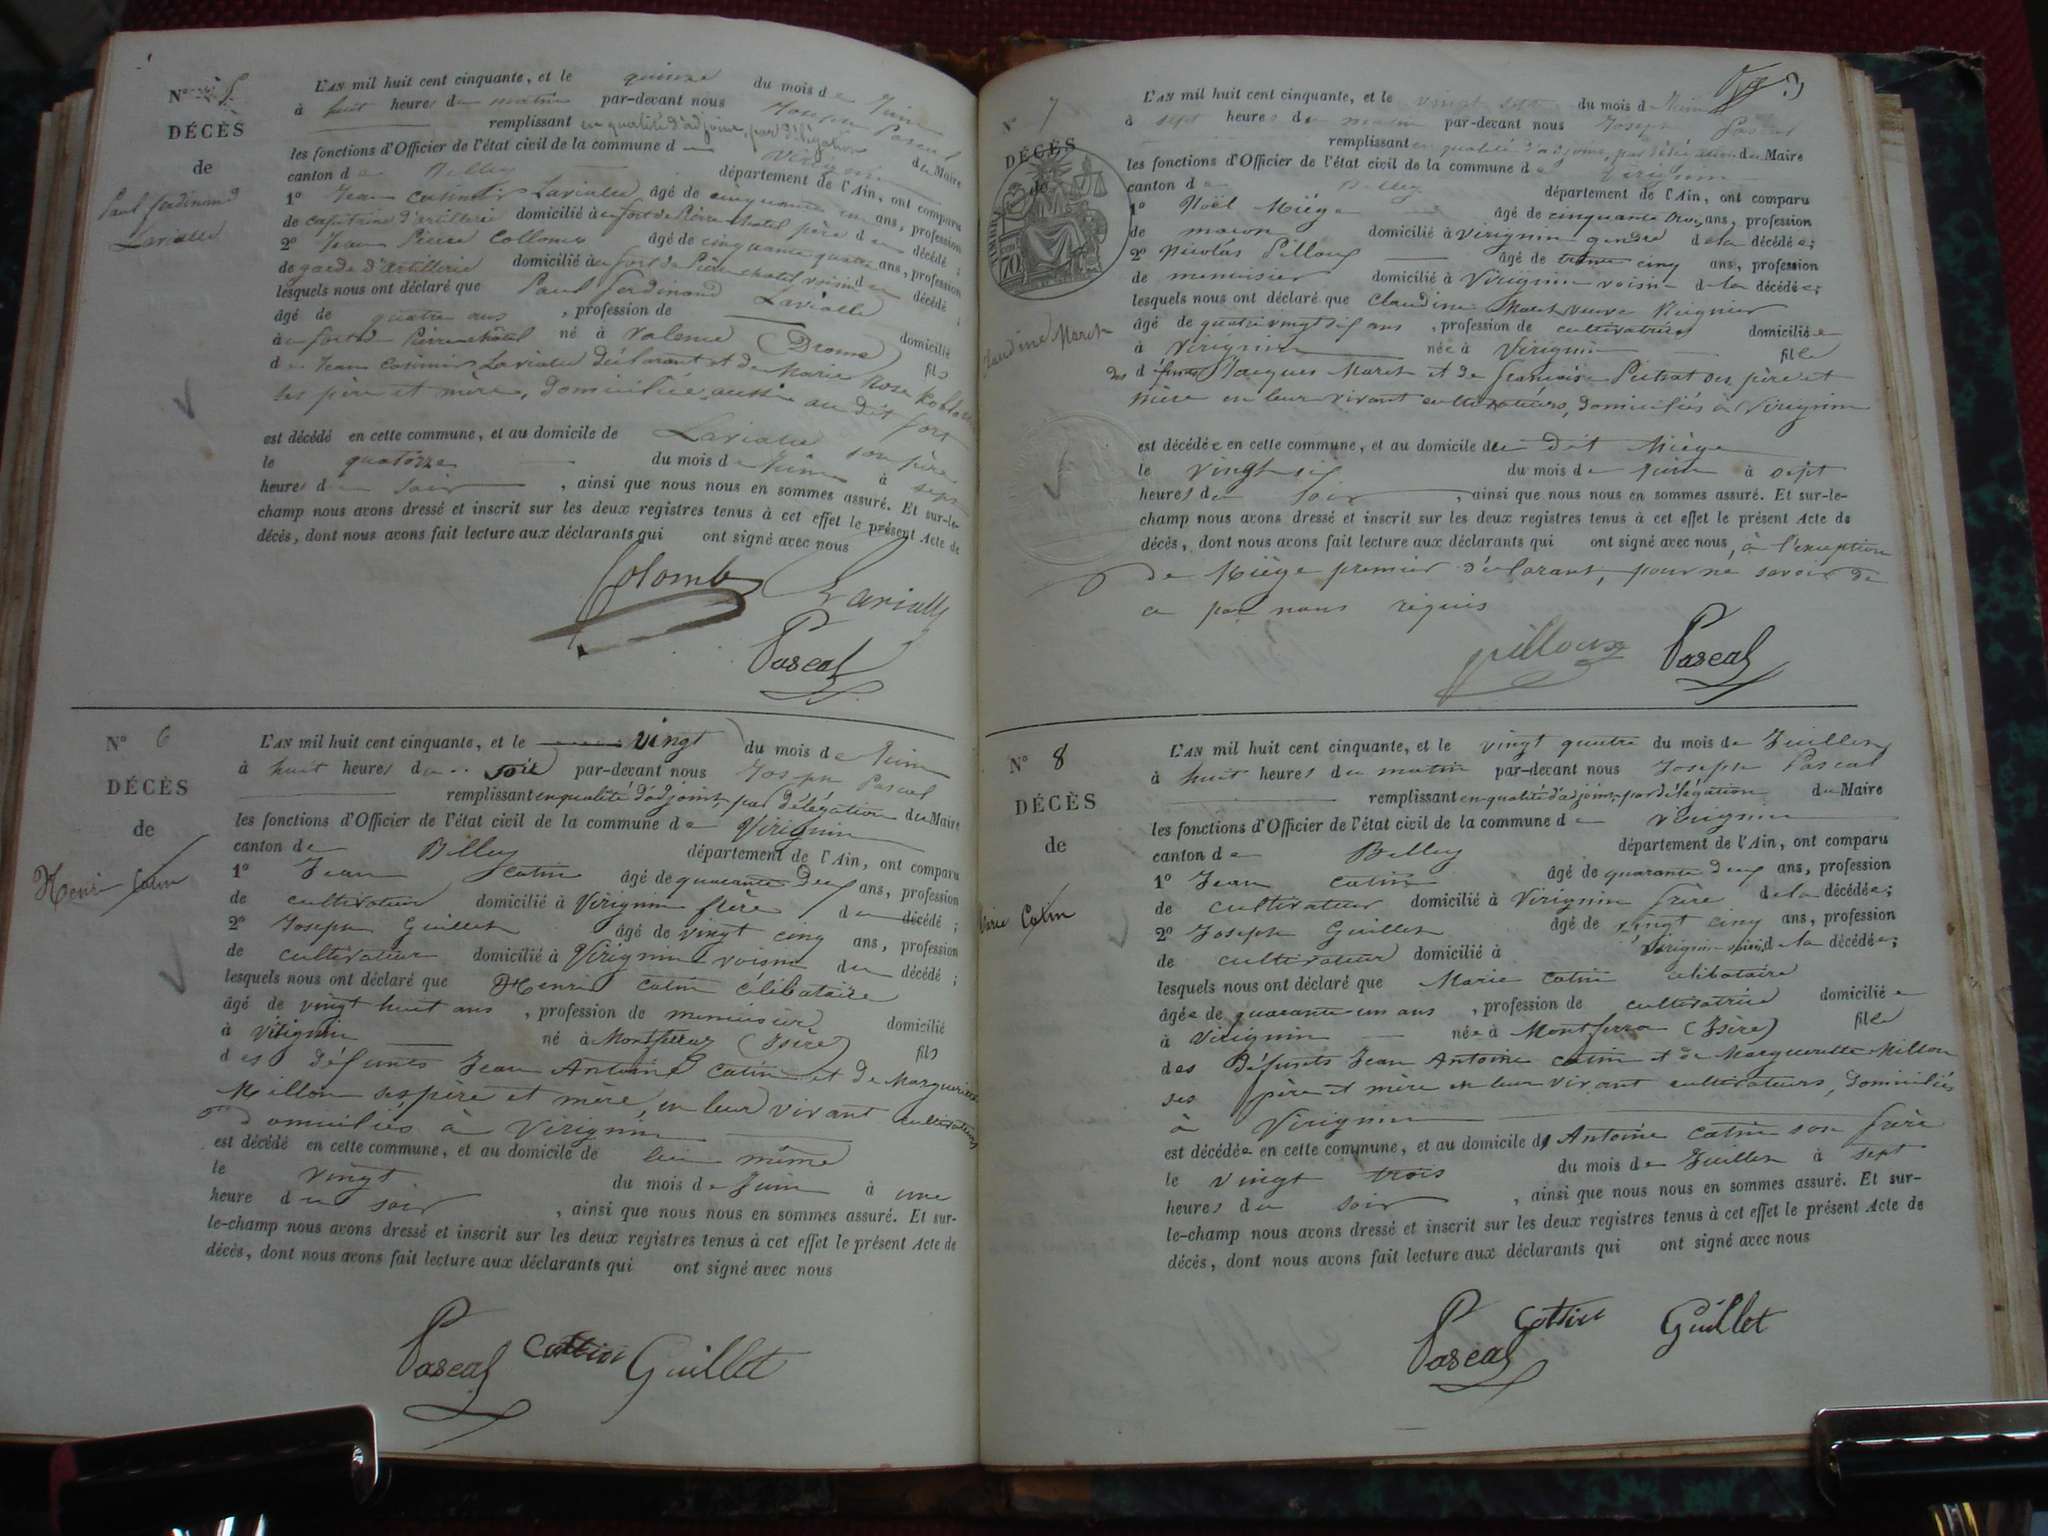 N° 5
DÉCÈS
de
Paul Ferdinand
Lavialle
L'AN mil huit cent cinquante, et le quinze du mois de Juin
à huit heures du matin par-devant nous Joseph Pascal
remplissant en qualité d'adjoint, par délégation du Maire
les fonctions d'Officier de l'état civil de la commune d Virignin
canton de Belley département de l'Ain, ont comparu
1° Jean Casimir Lavialle âgé de cinquante un ans, profession
de capitaine d'artillerie domicilié au fort de Pierre chatel père du décédé ;
2° Jean Pierre Collomb âgé de cinquante quatre ans, profession
de garde d'artillerie domicilié au fort de Pierre chatel voisin du décédé ;
lesquels nous ont déclaré que Paul Ferdinand Lavialle
âgé de quatre ans , profession de domicilié
au fort de Pierre chatel né à Valence (Drome) fils
de Jean Casimir Lavialle déclarant et de Marie Rose
ses père et mère, domiciliée aussi au dit fort
est décédé en cette commune, et au domicile de Lavialle son père
le quatorze du mois de Juin à sept
heures du soir , ainsi que nous nous en sommes assuré. Et sur-le-
champ nous avons dressé et inscrit sur les deux registres tenus à cet effet le présent Acte de
décès, dont nous avons fait lecture aux déclarants qui ont signé avec nous
Colomb Lavialle
Pascal
N° 6
DÉCÈS
de
Henri Catin
L'AN mil huit cent cinquante, et le vingt du mois de Juin
à huit heures du soir par-devant nous Joseph Pascal
remplissant en qualité d'adjoint, par délégation du Maire
les fonctions d'Officier de l'état civil de la commune de Virignin
canton de Belley département de l'Ain, ont comparu
1° Jean Catin âgé de quarante deux ans, profession
de cultivateur domicilié à Virignin frère du décédé ;
2° Joseph Guillet âgé de vingt cinq ans, profession
de cultivateur domicilié à Virignin voisin du décédé ;
lesquels nous ont déclaré que Henri Catin célibataire
âgé de vingt huit ans , profession de menuisier domicilié
à Virignin né à Montferraz (Isère) fils
des défunts Jean Antoine Catin et de Marguerite
Millon ses père et mère, en leur vivant cultivateurs
domiciliés à Virignin
est décédé en cette commune, et au domicile de lui même
le vingt du mois de Juin à une
heure du soir , ainsi que nous nous en sommes assuré. Et sur-
le-champ nous avons dressé et inscrit sur les deux registres tenus à cet effet le présent Acte de
décès, dont nous avons fait lecture aux déclarants qui ont signé avec nous
Pascal Cottin Guillet
N° 7
DÉCÈS
de
Claudine Maret
L'AN mil huit cent cinquante, et le vingt sept du mois de Juin
à sept heures du matin par-devant nous Joseph Pascal
remplissant en qualité d'adjoint, par délégation du Maire
les fonctions d'Officier de l'état civil de la commune de Virignin
canton de Belley département de l'Ain, ont comparu
1° Noël Miége âgé de cinquante trois ans, profession
de maçon domicilié à Virignin gendre de la décédée ;
2° Nicolas Pilloux âgé de trente cinq ans, profession
de menuisier domicilié à Virignin voisin de la décédée ;
lesquels nous ont déclaré que Claudine Maret veuve
âgé de quatre vingt dix ans , profession de cultivatrice domiciliée
à Virignin née à Virignin fille
des d Jacques Maret et de françoise père et
mère en leur vivant cultivateurs, domiciliés à Virignin
est décédée en cette commune, et au domicile du dit Miége
le vingt six du mois de Juin à sept
heures du soir , ainsi que nous nous en sommes assuré. Et sur-le-
champ nous avons dressé et inscrit sur les deux registres tenus à cet effet le présent Acte de
décès, dont nous avons fait lecture aux déclarants qui ont signé avec nous, à l'exception
de Miége premier déclarant, pour ne savoir de
ce par nous requis
pilloux Pascal
N° 8
DÉCÈS
de
Marie Catin
L'AN mil huit cent cinquante, et le vingt quatre du mois de Juillet
à huit heures du matin par-devant nous Joseph Pascal
remplissant en qualité d'adjoint, par délégation du Maire
les fonctions d'Officier de l'état civil de la commune de Virignin
canton de Belley département de l'Ain, ont comparu
1° Jean Catin âgé de quarante deux ans, profession
de cultivateur domicilié à Virignin frère de la décédée ;
2° Joseph Guillet âgé de vingt cinq ans, profession
de cultivateur domicilié à Virignin voisin de la décédée ;
lesquels nous ont déclaré que Marie Catin célibataire
âgée de quarante un ans , profession de cultivatrice domiciliée
à Virignin née à Montferra (Isère) fille
des Défunts Jean Antoine Catin et de Marguerite Millon
ses père et mère en leur vivant cultivateurs, domiciliés
à Virignin
est décédée en cette commune, et au domicile d Antoine Catin son frère
le vingt trois du mois de Juillet à sept
heures du soir , ainsi que nous nous en sommes assuré. Et sur-
le-champ nous avons dressé et inscrit sur les deux registres tenus à cet effet le présent Acte de
décès, dont nous avons fait lecture aux déclarants qui ont signé avec nous
Pascal Cottin Guillet